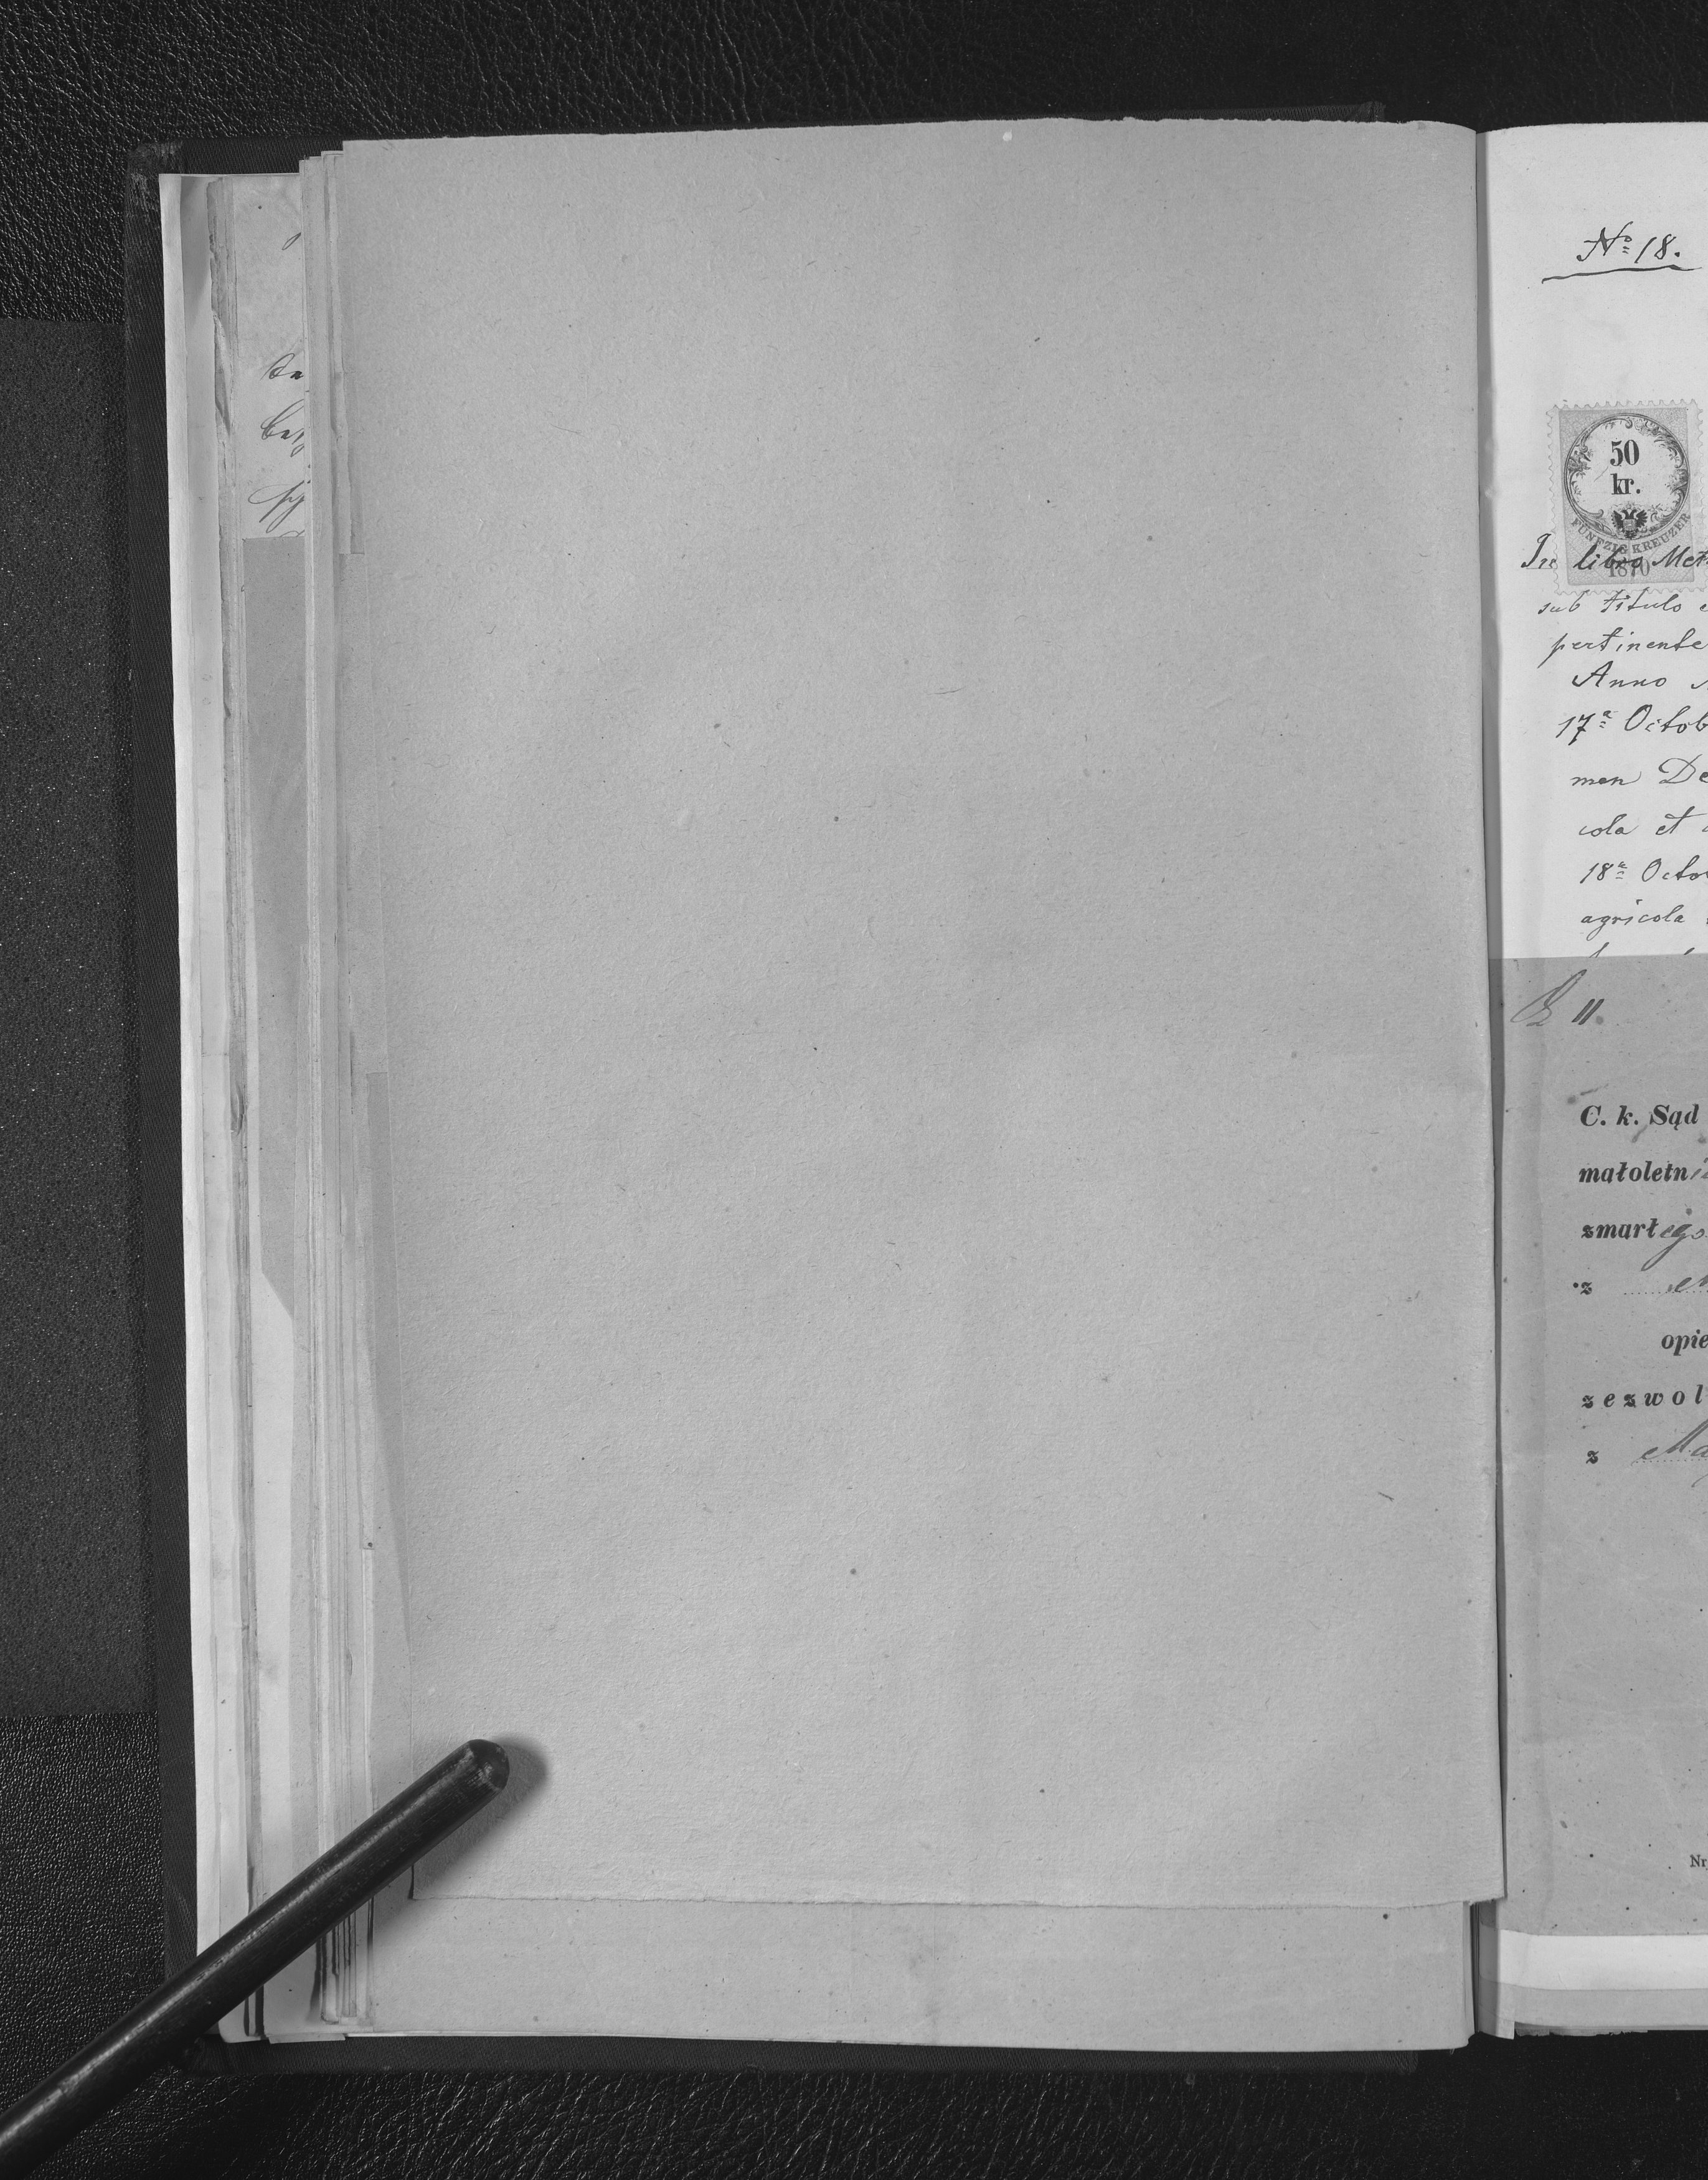 No 18.
50
kr.
FÜNFZIG KREUZER
1870
In libro Met
sub titulo
pertinente
Anno
17a Octob
men De
cola et
18a Octo
agricola
II
C. k. Sąd
małoletni
zmarłego
z
opie
zezwol
z Ma
Nr